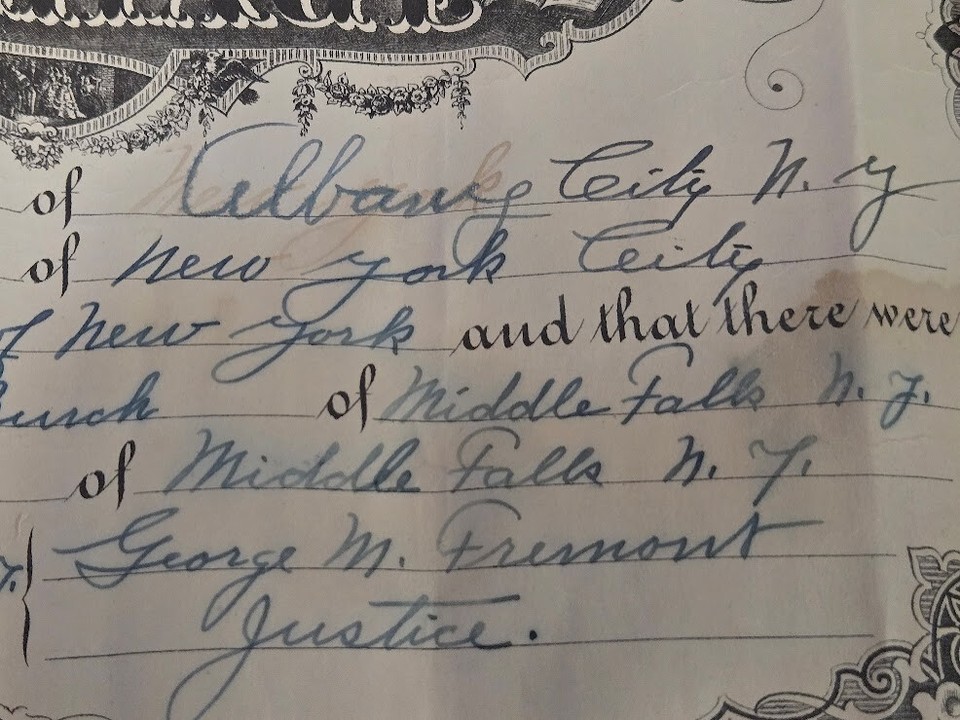 of Albany City N. Y
of New York City
of New York and that there were
of Middle Falls N. Y.
of Middle Falls N. Y.
George M. Fremont
Justice.